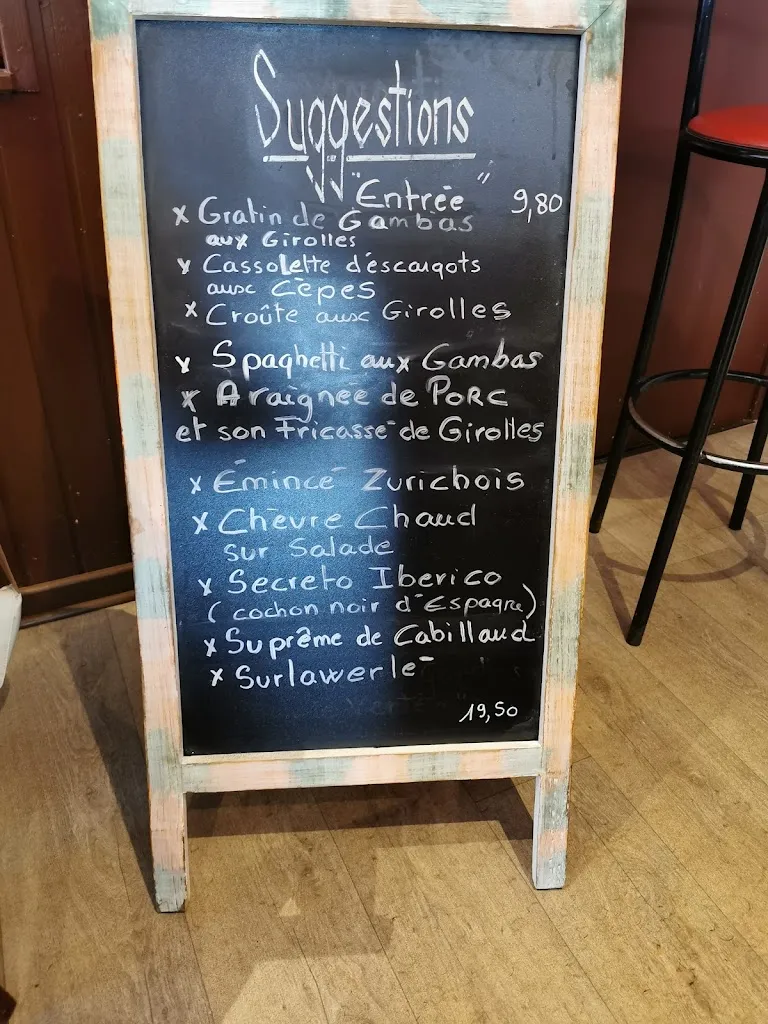 Suggestions
"Entrée" 9,80
x Gratin de Gambas
aux Girolles
x Cassolette d'escargots
aux Cèpes
x Croûte aux Girolles
x Spaghetti aux Gambas
x Araignée de PORC
et son Fricassé de Girolles
x Émincé Zurichois
x Chèvre Chaud
sur Salade
x Secreto Iberico
(cochon noir d'Espagne)
x Suprême de Cabillaud
x Surlawerlé
19,50